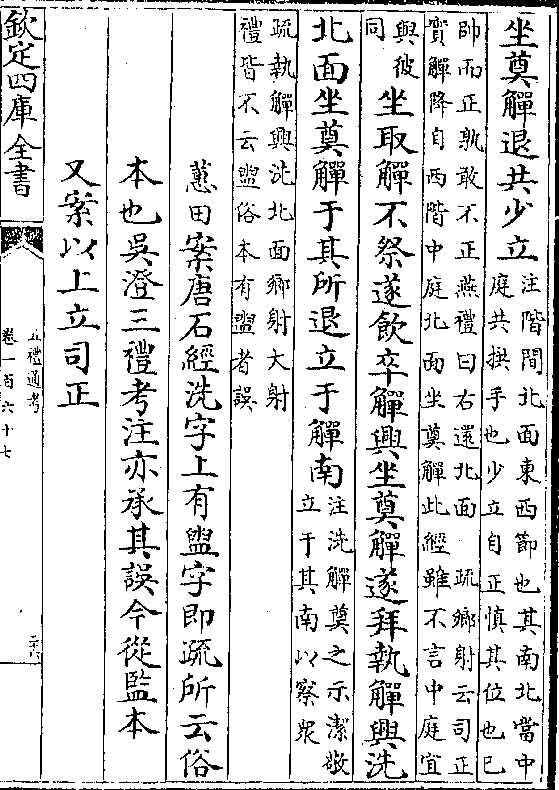 坐奠觶退共少立
注階間北面東西節也其南北當中
庭共拱手也少立自正慎其位也已
帥而正孰敢不正燕禮曰右還北面 疏鄉射云司正
實觶降自西階中庭北面坐奠觶此經雖不言中庭宜
與彼
同
坐取觶不祭遂飲卒觶興坐奠觶遂拜執觶興洗
北面坐奠觶于其所退立于觶南
注洗觶奠之示潔敬
立于其南以察衆
疏執觶興洗北面鄉射大射
禮皆不云盥俗本有盥者誤
蕙田案唐石經洗字上有盥字即疏所云俗
本也吳澄三禮考注亦承其誤今從監本
又案以上立司正
欽定四庫全書
五禮通考
卷一百六十七